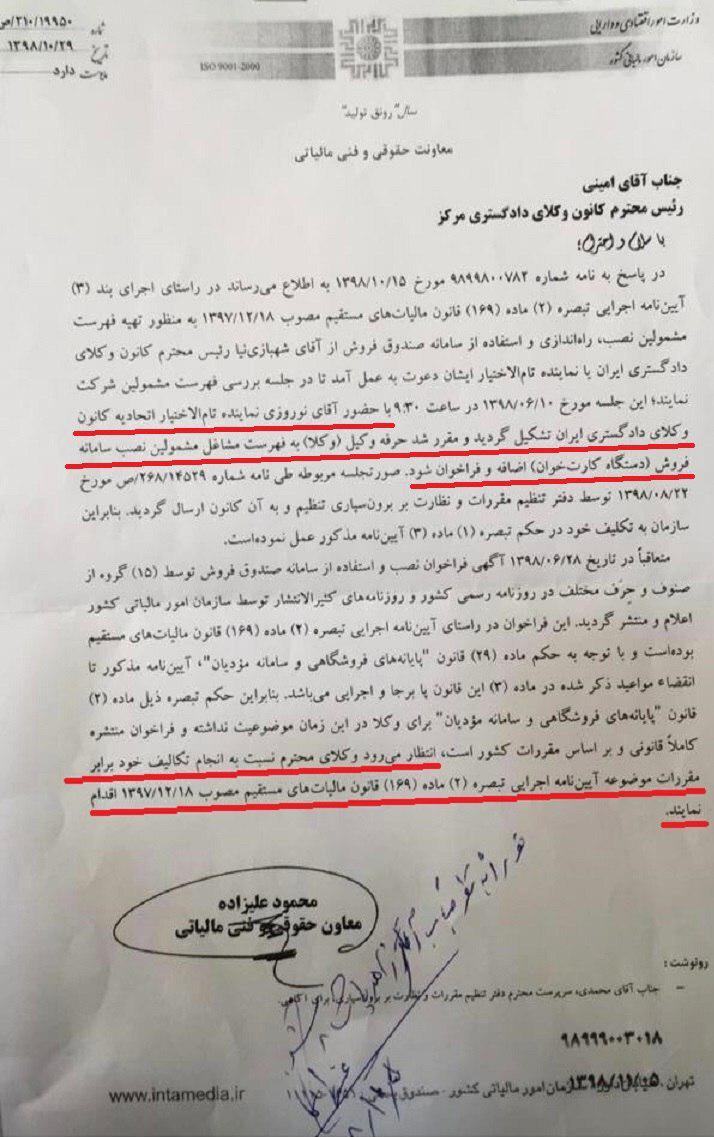 وزارت امور اقتصادی و دارایی
سازمان امور مالیاتی کشور
ISO 9001-2000
شماره ۲۱۰/۱۹۹۵۰/ص
تاریخ ۱۳۹۸/۱۰/۲۹
پیوست دارد
سال "رونق تولید"
معاونت حقوقی و فنی مالیاتی
جناب آقای امینی
رئیس محترم کانون وکلای دادگستری مرکز
با سلام و احترام؛
در پاسخ به نامه شماره ۹۸۹۹۸۰۰۷۸۲ مورخ ۱۳۹۸/۱۰/۱۵ به اطلاع می‌رساند در راستای اجرای بند (۳)
آیین‌نامه اجرایی تبصره (۲) ماده (۱۶۹) قانون مالیات‌های مستقیم مصوب ۱۳۹۷/۱۲/۱۸ به منظور تهیه فهرست
مشمولین نصب، راه‌اندازی و استفاده از سامانه صندوق فروش از آقای شهبازی‌نیا رئیس محترم کانون وکلای
دادگستری ایران یا نماینده تام‌الاختیار ایشان دعوت به عمل آمد تا در جلسه بررسی فهرست مشمولین شرکت
نمایند؛ این جلسه مورخ ۱۳۹۸/۰۶/۱۰ در ساعت ۹:۳۰ با حضور آقای نوروزی نماینده تام‌الاختیار اتحادیه کانون
وکلای دادگستری ایران تشکیل گردید و مقرر شد حرفه وکیل (وکلا) به فهرست مشاغل مشمولین نصب سامانه
فروش (دستگاه کارت‌خوان) اضافه و فراخوان شود. صورتجلسه مربوطه طی نامه شماره ۲۶۸/۱۴۵۲۹/ص مورخ
۱۳۹۸/۰۸/۲۲ توسط دفتر تنظیم مقررات و نظارت بر برون‌سپاری تنظیم و به آن کانون ارسال گردید. بنابراین
سازمان به تکلیف خود در حکم تبصره (۱) ماده (۳) آیین‌نامه مذکور عمل نموده‌است.
متعاقباً در تاریخ ۱۳۹۸/۰۶/۲۸ آگهی فراخوان نصب و استفاده از سامانه صندوق فروش توسط (۱۵) گروه از
صنوف و حِرَف مختلف در روزنامه رسمی کشور و روزنامه‌های کثیرالانتشار توسط سازمان امور مالیاتی کشور
اعلام و منتشر گردید. این فراخوان در راستای آیین‌نامه اجرایی تبصره (۲) ماده (۱۶۹) قانون مالیات‌های مستقیم
بوده‌است و با توجه به حکم ماده (۲۹) قانون "پایانه‌های فروشگاهی و سامانه مؤدیان"، آیین‌نامه مذکور تا
انقضاء مواعید ذکر شده در ماده (۳) این قانون پا برجا و اجرایی می‌باشد. بنابراین حکم تبصره ذیل ماده (۲)
قانون "پایانه‌های فروشگاهی و سامانه مؤدیان" برای وکلا در این زمان موضوعیت نداشته و فراخوان منتشره
کاملاً قانونی و بر اساس مقررات کشور است، انتظار می‌رود وکلای محترم نسبت به انجام تکالیف خود برابر
مقررات موضوعه آیین‌نامه اجرایی تبصره (۲) ماده (۱۶۹) قانون مالیات‌های مستقیم مصوب ۱۳۹۷/۱۲/۱۸ اقدام
نمایند.
محمود علیزاده
معاون حقوقی و فنی مالیاتی
رونوشت :
– جناب آقای محمدی، سرپرست محترم دفتر تنظیم مقررات و نظارت بر برون‌سپاری، برای آگاهی.
۹۸۹۹۹۰۰۳۰۱۸
۱۳۹۸/۱۱/۰۵
تهران - خیابان داور - سازمان امور مالیاتی کشور - صندوق
www.intamedia.ir